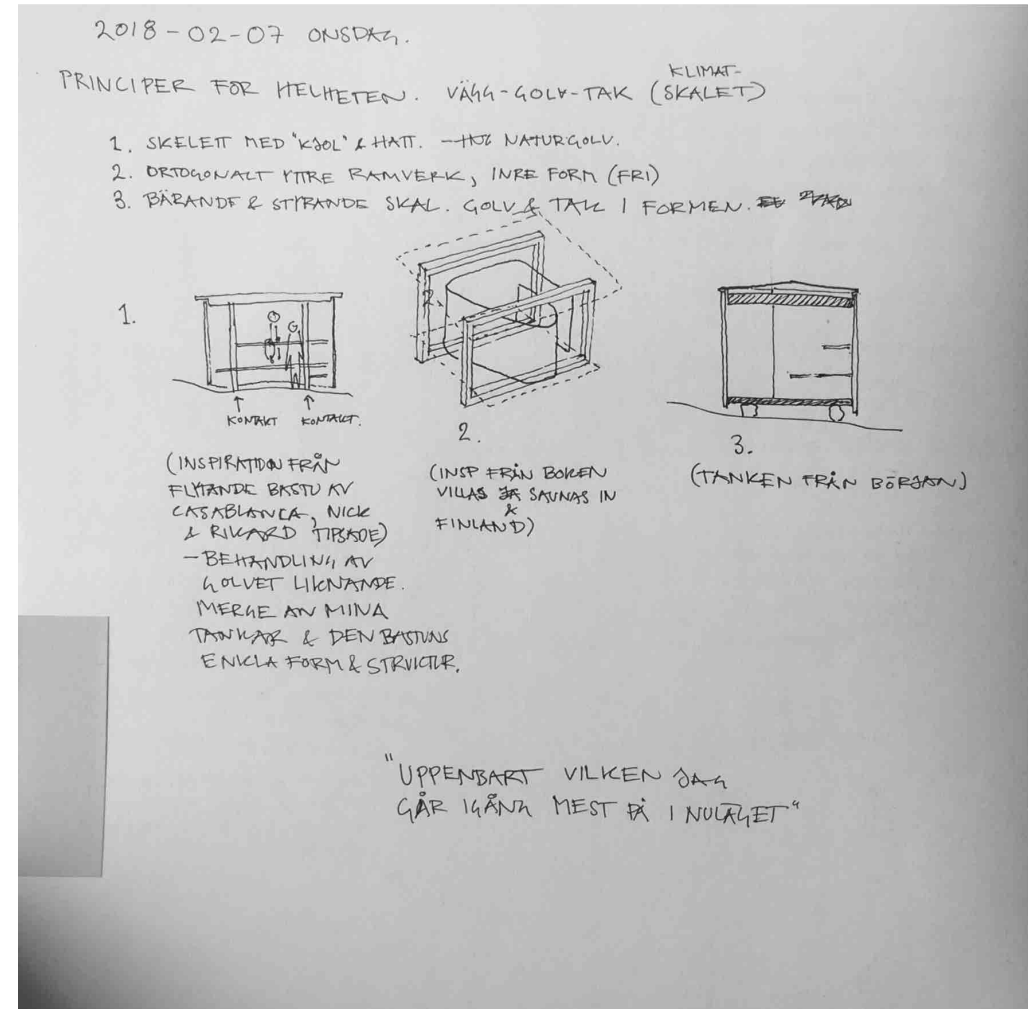 2018-02-07 ONSDAG.
KLIMAT-
PRINCIPER FÖR HELHETEN. VÄGG-GOLV-TAK (SKALET)
1. SKELETT MED "KJOL" & HATT. NATURGOLV.
2. ORTOGONALT YTTRE RAMVERK, INRE FORM (FRI)
3. BÄRANDE & STYRANDE SKAL. GOLV & TAK I FORMEN.
1.
KONTAKT KONTAKT.
2.
3.
(INSPIRATION FRÅN
FLYTANDE BASTU AV
CASABLANCA, NICK
& RIKARD TIPSADE)
- BEHANDLING AV
GOLVET LIKNANDE.
MERGE AN MINA
TANKAR & DEN BASTUNS
ENKLA FORM & STRUKTUR.
(INSP FRÅN BOKEN
VILLAS & SAUNAS IN
FINLAND)
(TANKEN FRÅN BÖRJAN)
"UPPENBART VILKEN JAG
GÅR IGÅNG MEST PÅ I NULÄGET"